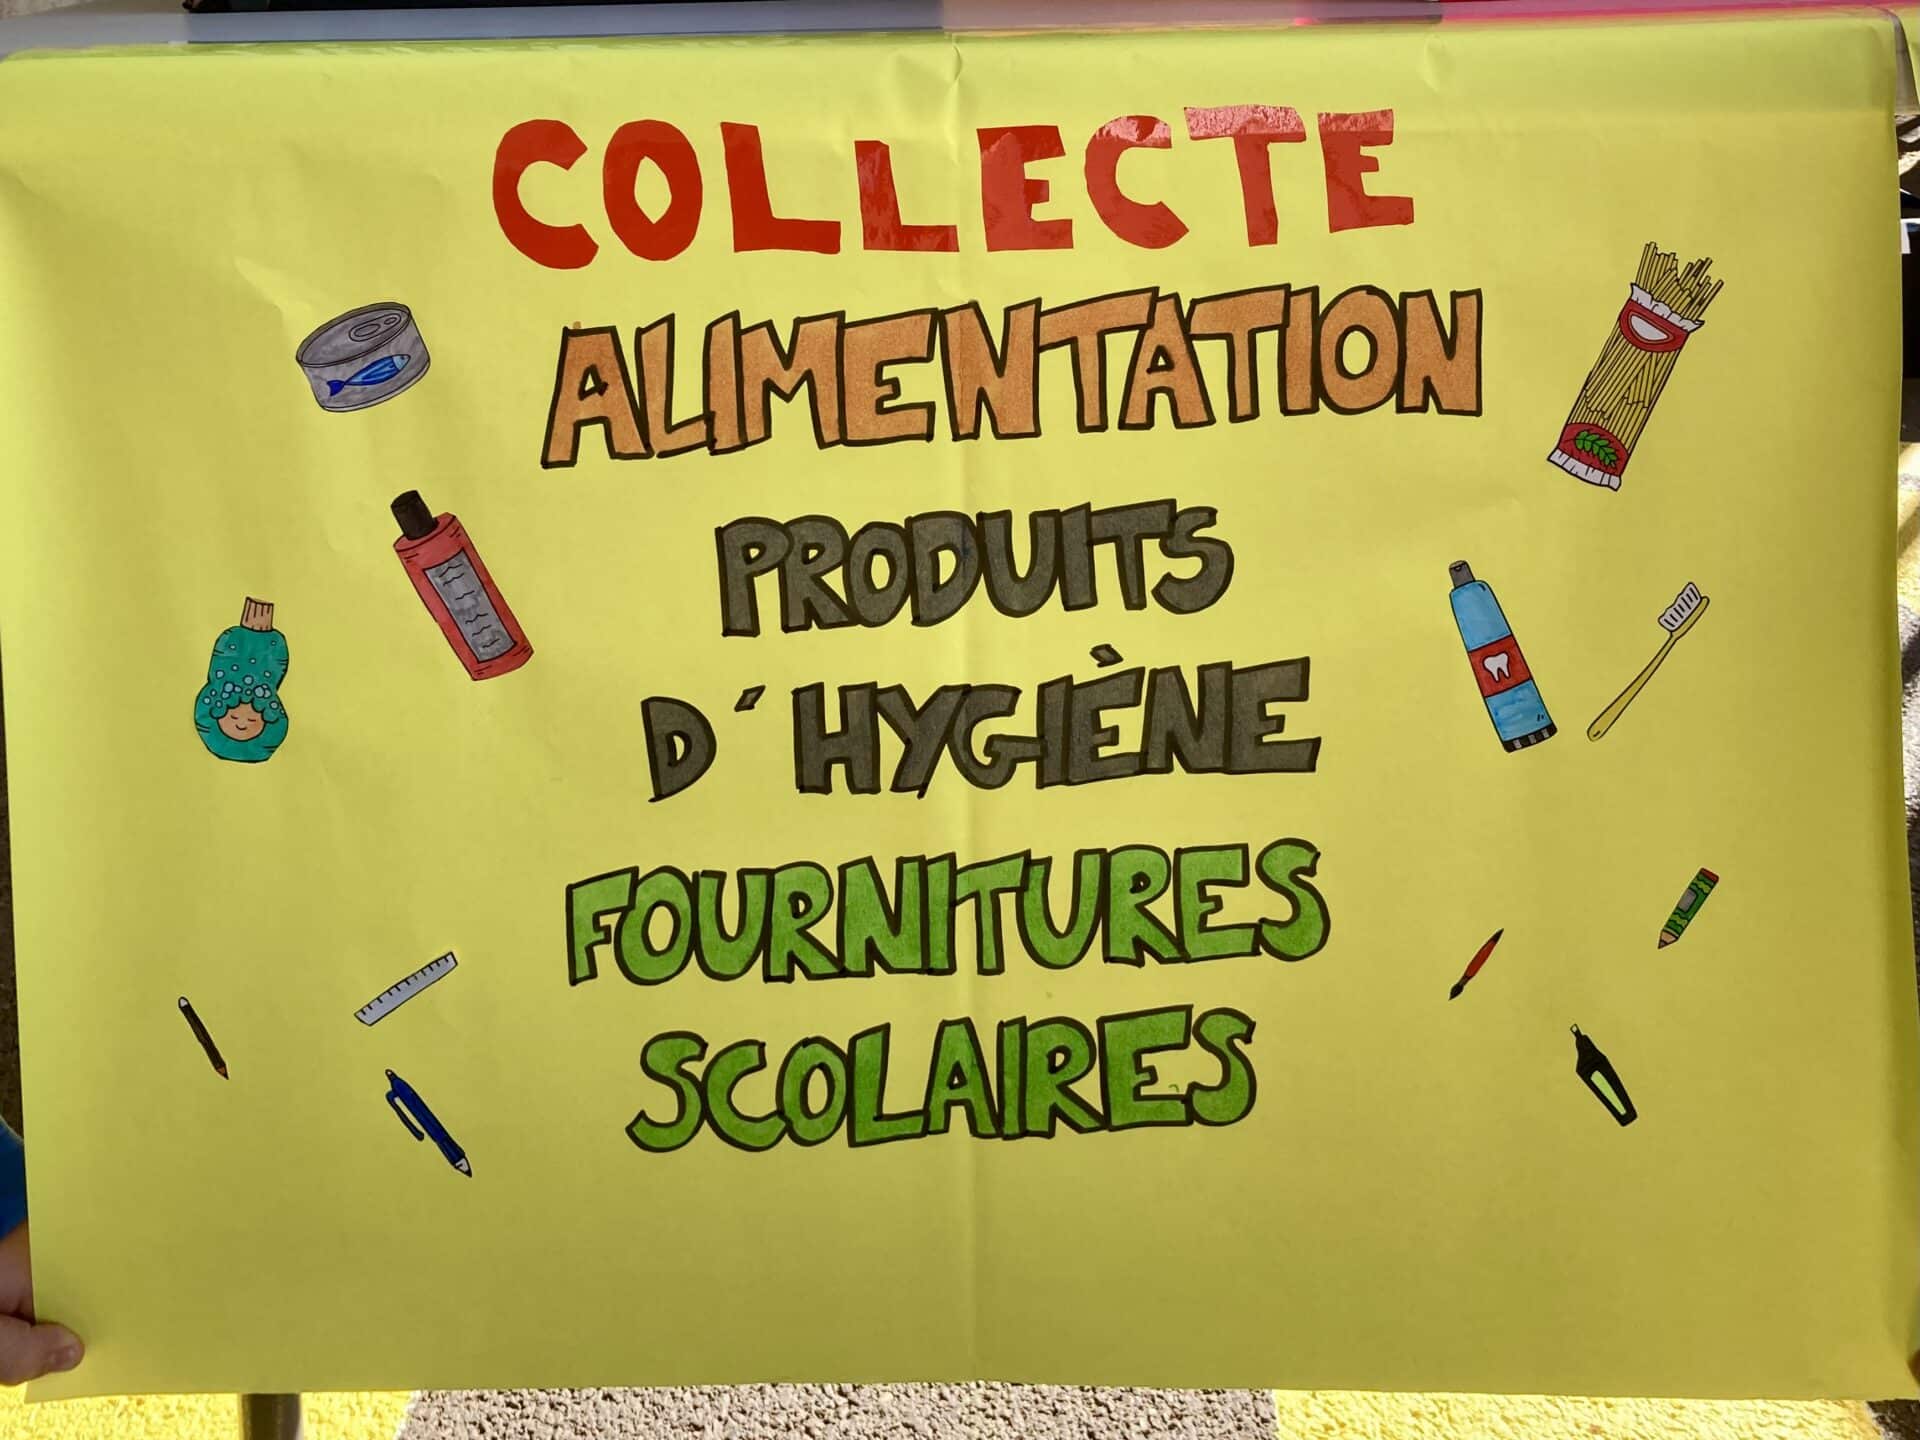 COLLECTE
ALIMENTATION
PRODUITS
D´HYGIÈNE
FOURNITURES
SCOLAIRES